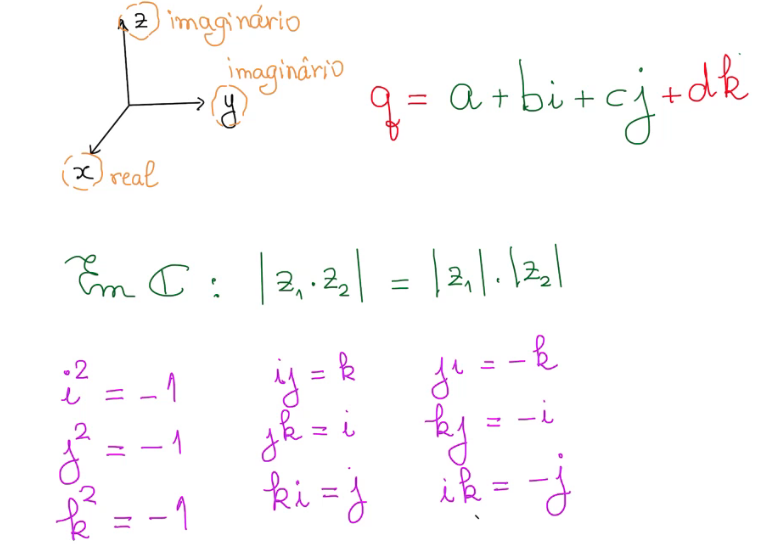 z imaginário
imaginário
y
x real
q = a + bi + cj + dk
Em ℂ : |z₁ · z₂| = |z₁| · |z₂|
i² = -1 ij = k ji = -k
j² = -1 jk = i kj = -i
k² = -1 ki = j ik = -j